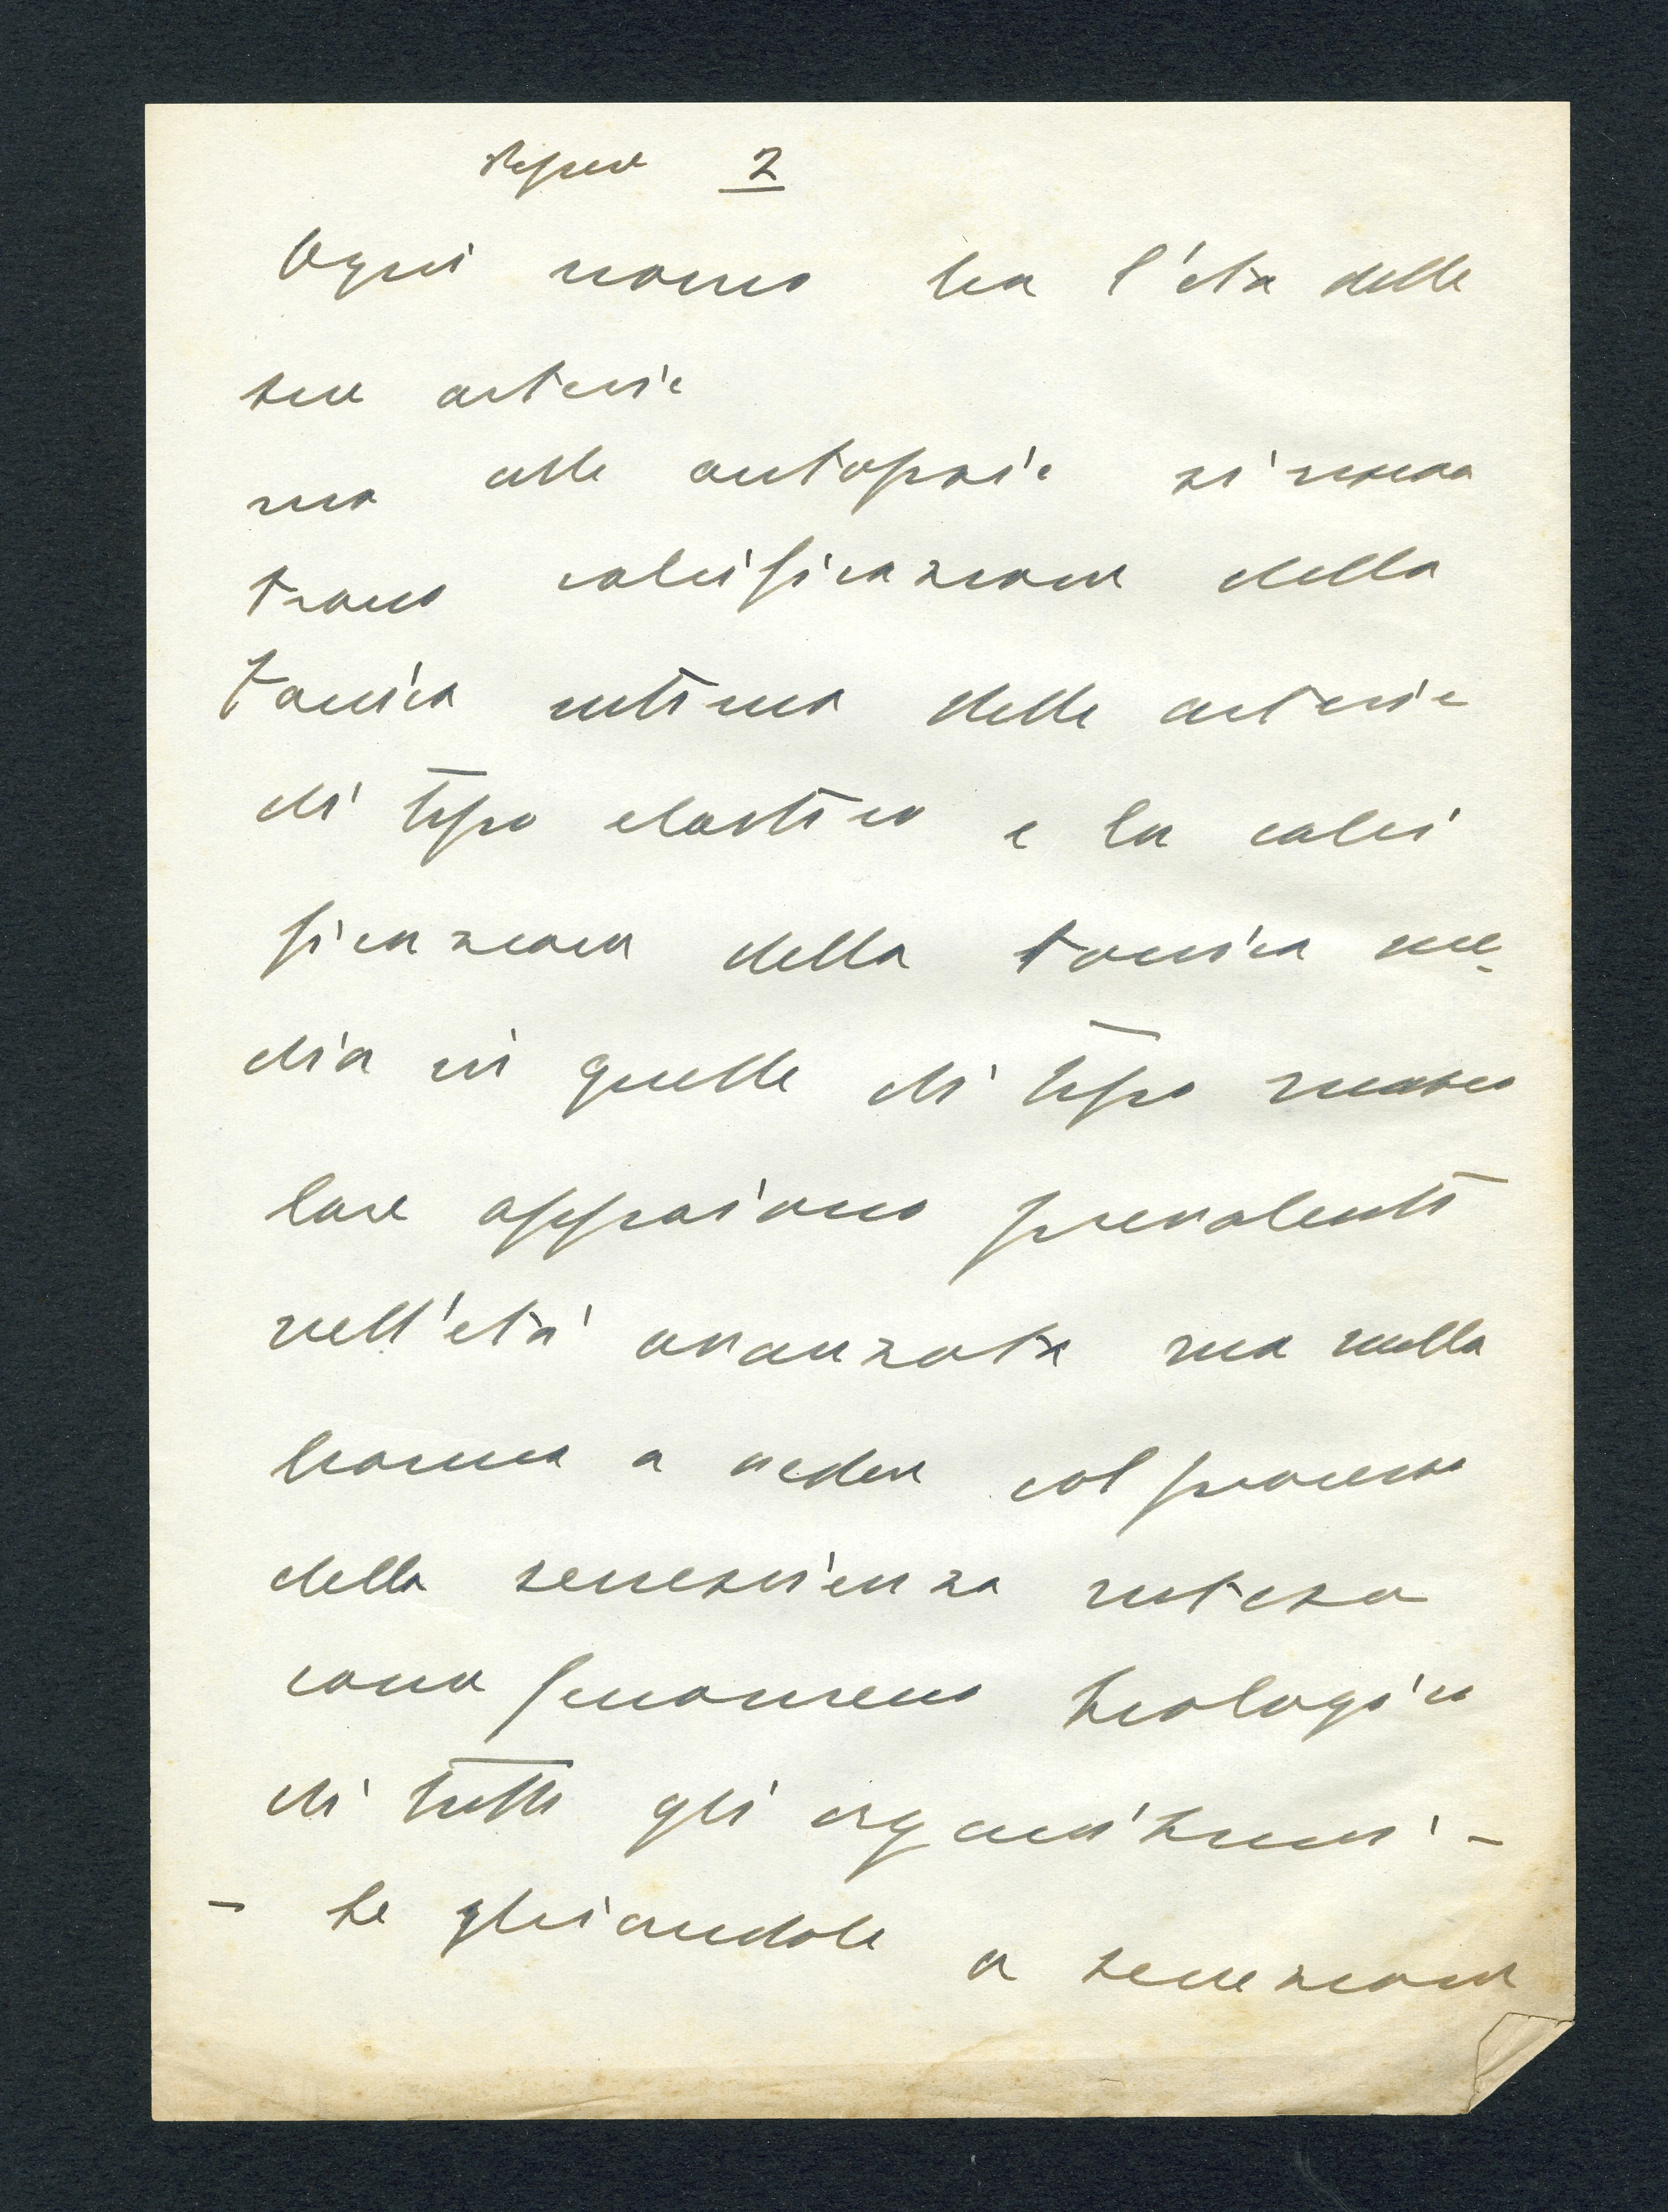 2
Ogni uomo ha l'eta delle
sue arterie
ma alle autopsie si risco
trano calcificazione della
tonica intima delle arterie
di tipo elastico e la calci
ficazione della tonica me-
dia in quelle di tipo musco
lare appaiono prevalenti
nell'età avanzata ma nulla
hanno a veder col processo
della senescienza intesa
come fenomeno biologico
di tutti gli organismi -
- Le ghiandole a secrezione